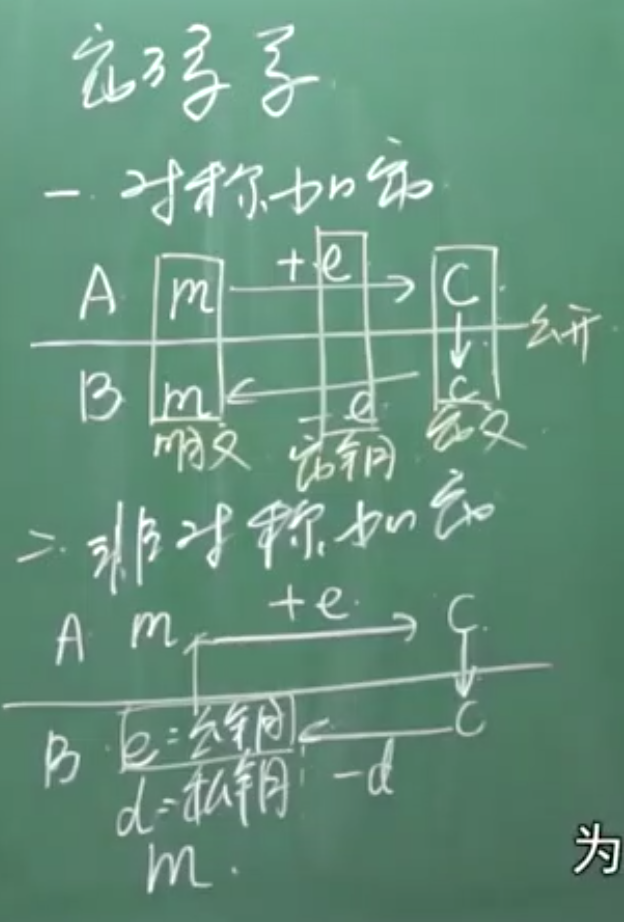 密码学
一. 对称加密
A m +e C
公开
B m - e c
明文 密钥 密文
二. 非对称加密
A m +e. C
B e=公钥 c
d=私钥 -d
m.
为